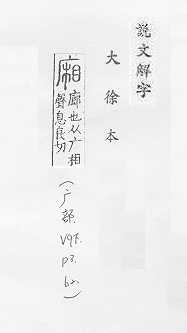 説文解字
大徐本
廂
廊也从广相
聲息良切
(广部.
V9下.
p3.
b2.)